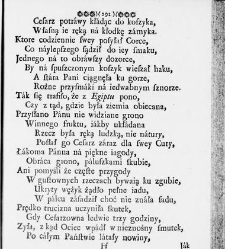 )o( 192 )o(
Cesarz potráwy kłádąc do koszyka,
Włásną ie ręką ná kłodkę zámyka.
Ktore codziennie swey posyłał Corce,
Co náylepszego sądził do iey smáku,
Jednego ná to obrawszy dozorce,
By ná spuszczonym koszyk wieszał háku,
A stára Pani ciągnęłá ku gorze,
Rożne przysmáki ná iedwabnym sznorze.
Ták się trafiło, że z Egiptu pono,
Czy z tąd, gdzie byłá ziemiá obiecana,
Przysłano Pánu nie widziane grono
Winnego fruktu, iákby ukłádana
Rzecz byłá ręką ludzką, nie nátury,
Posłał go Cesarz záraz dla swey Cury,
Łákoma Pánna ná piękne iágody,
Obráca grono, páluszkámi skubie,
Ani pomyśli że częste przygody
W gustownych rzeczach bywáią ku zgubie,
Ukryty wężyk żądło pełne iadu,
W pálcu zásádził choć nie znáła śládu,
Prędko trucizna uczyniłá skutek,
Gdy Cesarzowna ledwie trzy godziny,
Zyłá, z kąd Ociec wpádł w nieznośny smutek,
Po cáłym Páństwie látáły nowiny,
H ják